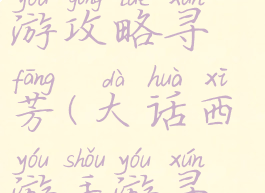 yóu gōng lüè xún
游攻略寻
fāng dà huà xī
芳(大话西
yóu shǒu yóu xún
游手游寻